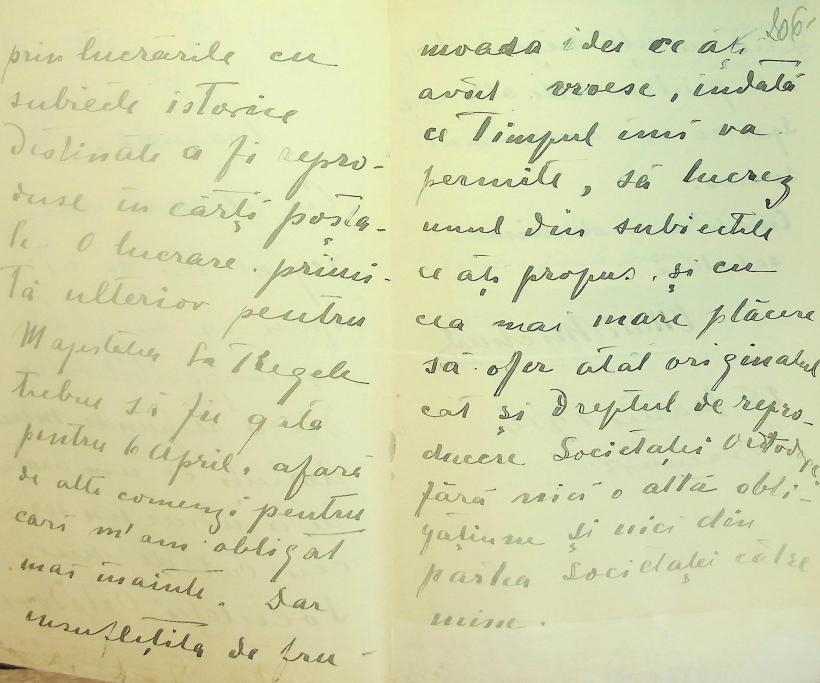 prin lucrările cu
subiecte istorice
destinate a fi repro-
duse în cărți poșta-
le. O lucrare primi-
tă ulterior pentru
Majestatea Sa Regele
trebue să fie gata
pentru 6 April, afară
de alte comenzi pentru
cari m'am obligat
mai înainte. Dar
insuflețită de fru-
206
moasa idee ce ați
avut vroesc, îndată
ce timpul îmi va
permite, să lucrez
unul din subiectele
ce ați propus și cu
cea mai mare plăcere
să ofer atât originalul
cât și dreptul de repro-
ducere Societăței Ortodoxe,
fără nici o altă obli-
gațiune și nici din
partea Societăței către
mine.